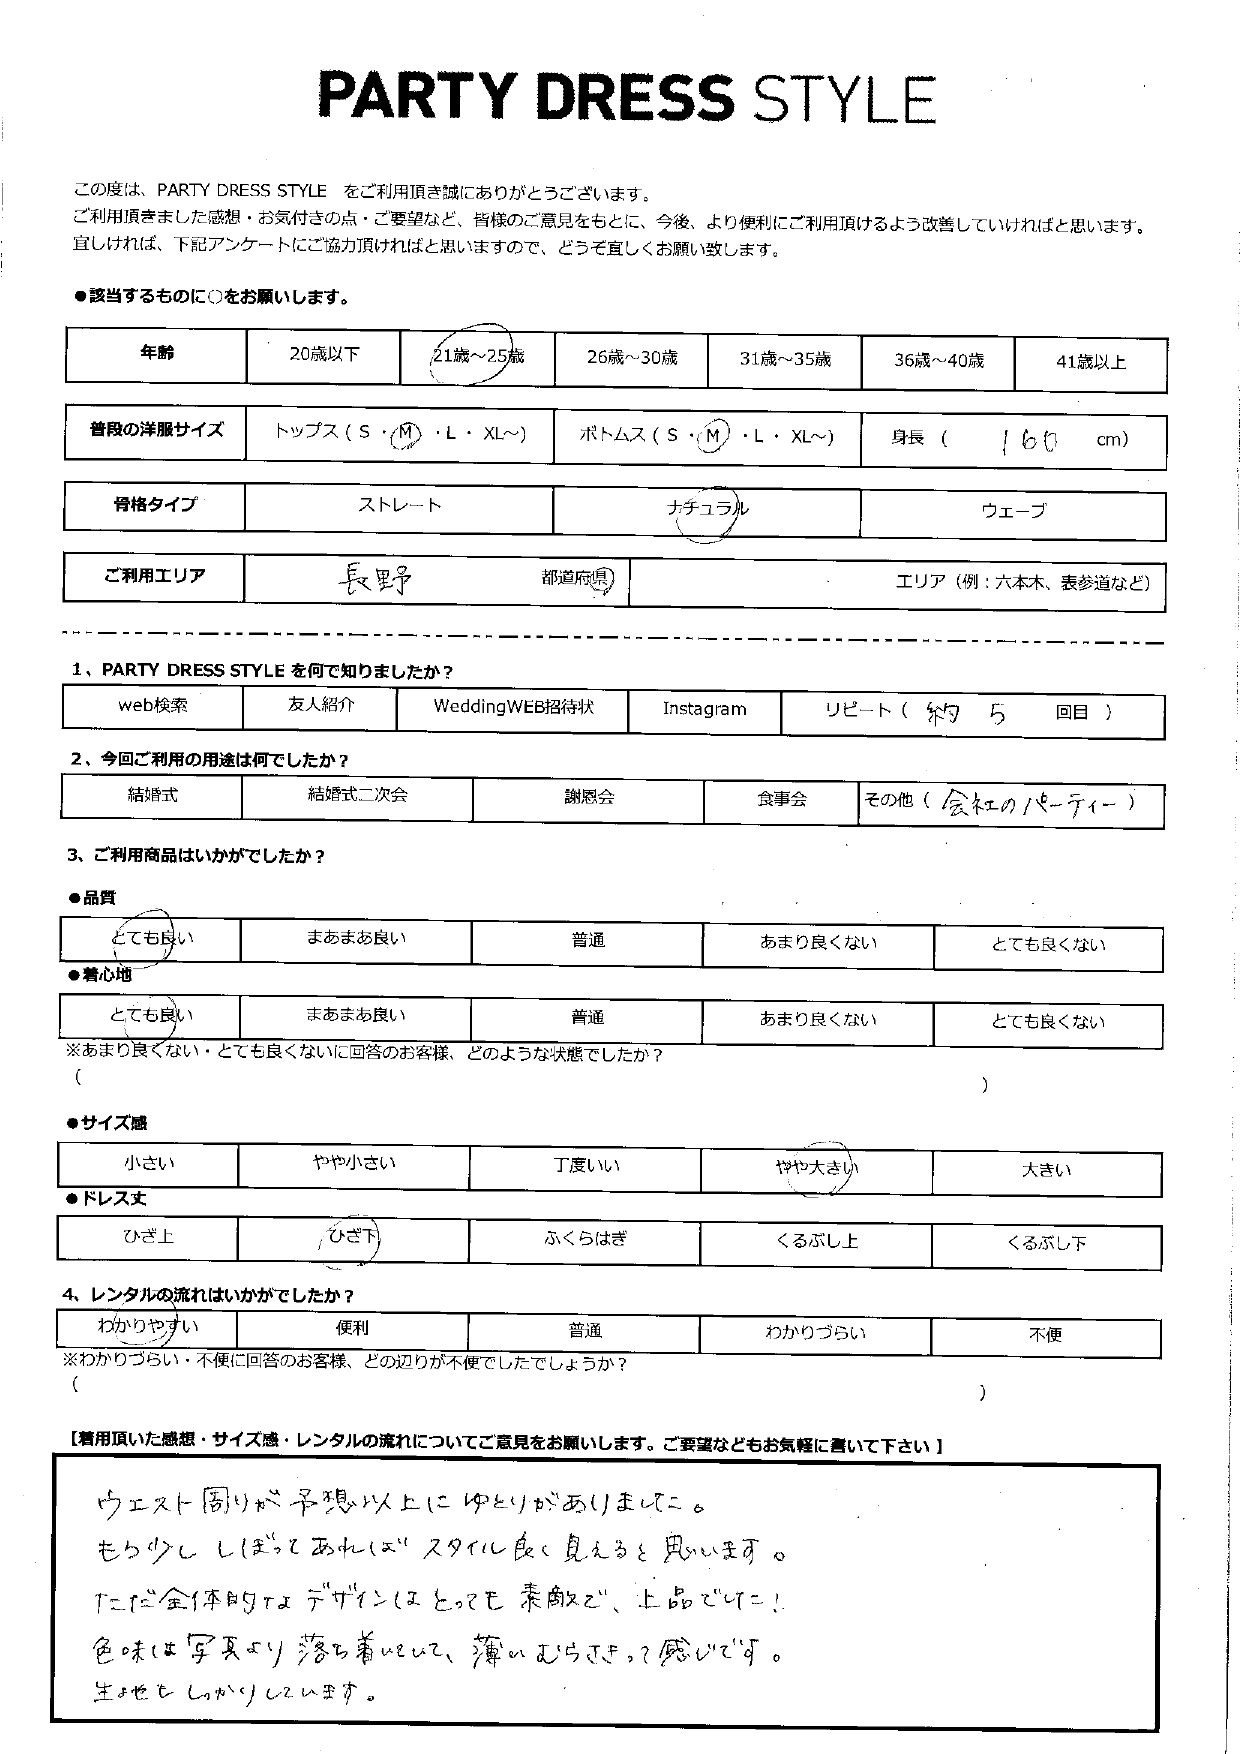 PARTY DRESS STYLE
この度は、PARTY DRESS STYLE をご利用頂き誠にありがとうございます。
ご利用頂きました感想・お気付きの点・ご要望など、皆様のご意見をもとに、今後、より便利にご利用頂けるよう改善していければと思います。
宜しければ、下記アンケートにご協力頂ければと思いますので、どうぞ宜しくお願い致します。
●該当するものに○をお願いします。
年齢 20歳以下 21歳～25歳 26歳～30歳 31歳～35歳 36歳～40歳 41歳以上
普段の洋服サイズ トップス ( S ・ M ・ L ・ XL～) ボトムス ( S ・ M ・ L ・ XL～) 身長 ( 160 cm)
骨格タイプ ストレート ナチュラル ウェーブ
ご利用エリア 長野 都道府県 エリア（例：六本木、表参道など）
1、PARTY DRESS STYLE を何で知りましたか？
web検索 友人紹介 WeddingWEB招待状 Instagram リピート ( 約 5 回目 )
2、今回ご利用の用途は何でしたか？
結婚式 結婚式二次会 謝恩会 食事会 その他 ( 会社のパーティー )
3、ご利用商品はいかがでしたか？
●品質
とても良い まあまあ良い 普通 あまり良くない とても良くない
●着心地
とても良い まあまあ良い 普通 あまり良くない とても良くない
※あまり良くない・とても良くないに回答のお客様、どのような状態でしたか？
( )
●サイズ感
小さい やや小さい 丁度いい やや大きい 大きい
●ドレス丈
ひざ上 ひざ下 ふくらはぎ くるぶし上 くるぶし下
4、レンタルの流れはいかがでしたか？
わかりやすい 便利 普通 わかりづらい 不便
※わかりづらい・不便に回答のお客様、どの辺りが不便でしたでしょうか？
( )
【着用頂いた感想・サイズ感・レンタルの流れについてご意見をお願いします。ご要望などもお気軽に書いて下さい】
ウエスト周りが予想以上にゆとりがありました。
もう少ししぼってあればスタイル良く見えると思います。
ただ全体的なデザインはとっても素敵で、上品でした！
色味は写真より落ち着いていて、薄いむらさきって感じです。
生地もしっかりしています。